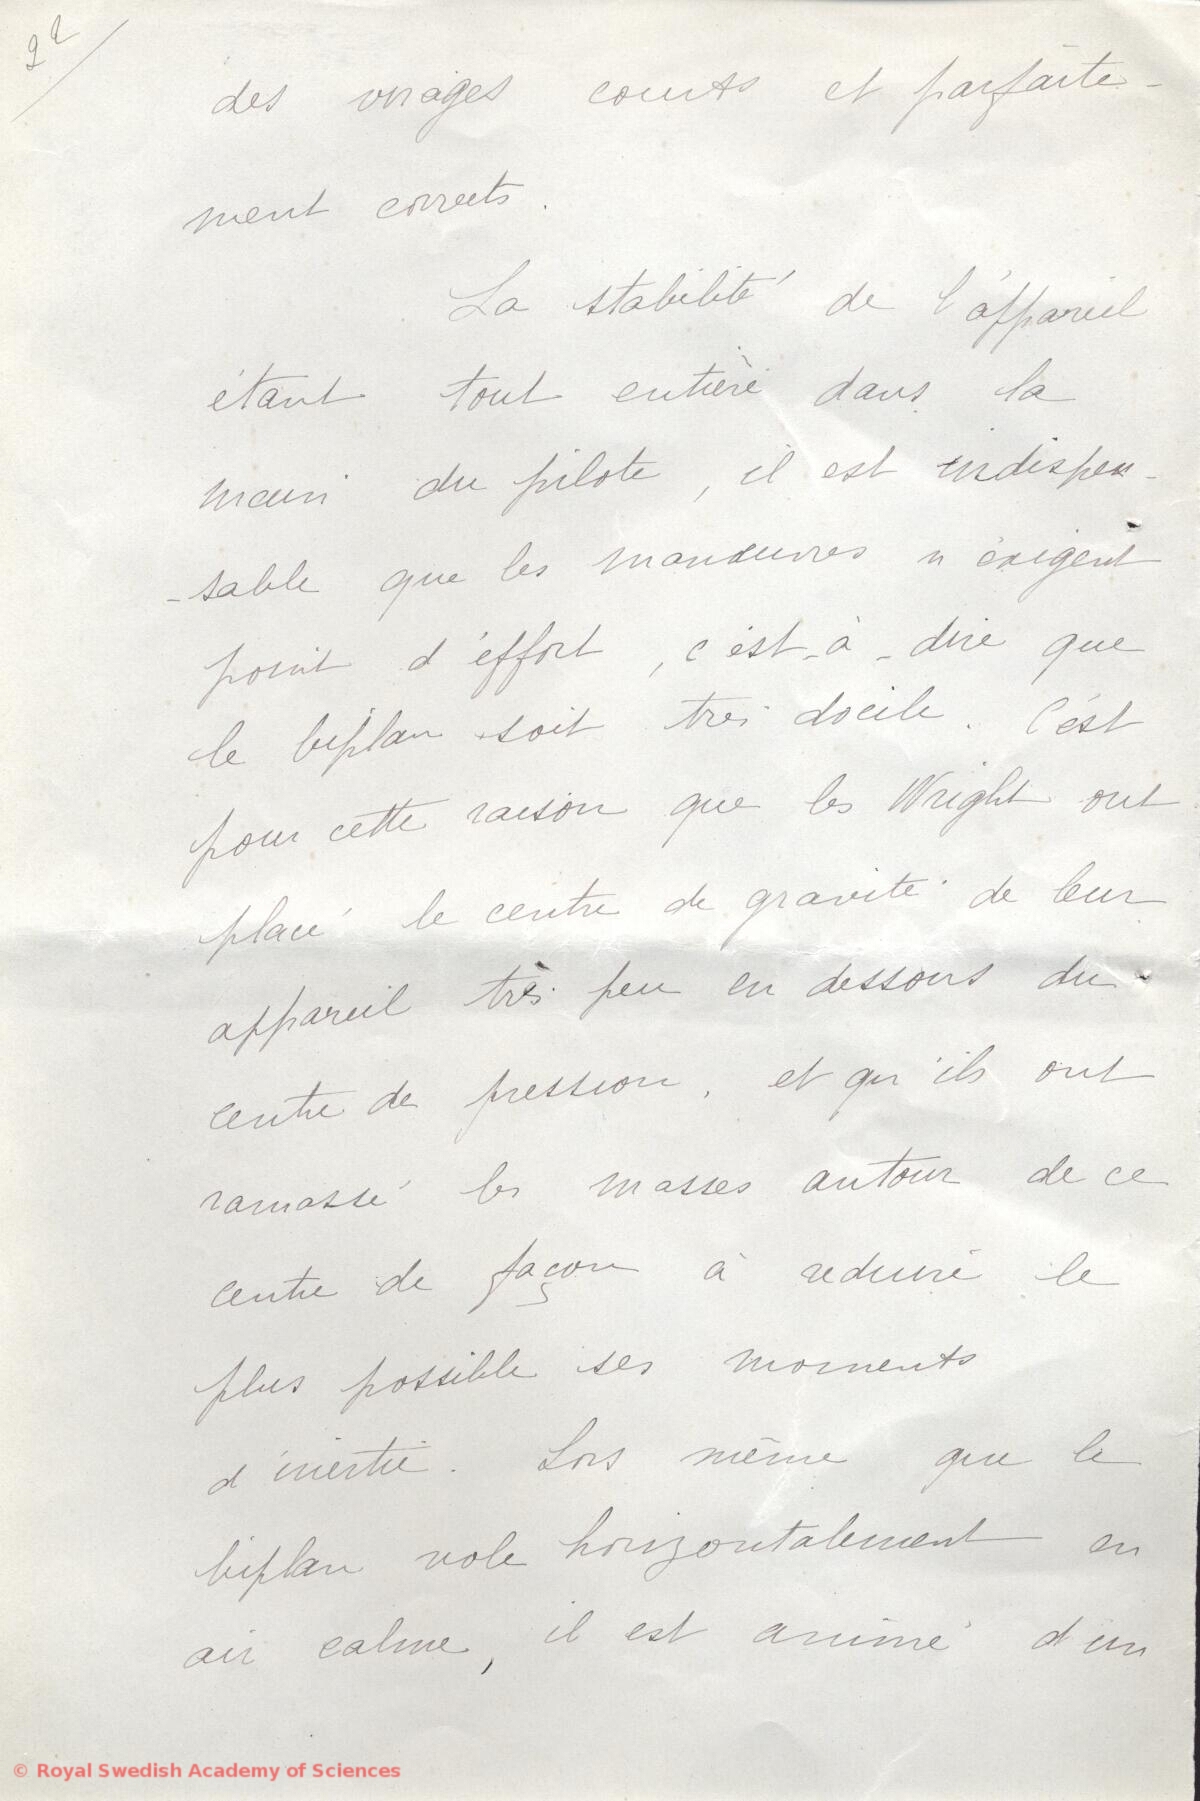 22
des virages courts et parfaite-
ment corrects.
La stabilité de l'appareil
étant tout entière dans la
main du pilote, il est indispen-
-sable que les manœuvres n'exigent
point d'effort, c'est-à-dire que
le biplan soit très docile. C'est
pour cette raison que les Wright ont
placé le centre de gravité de leur
appareil très peu en dessous du
centre de pression, et qu'ils ont
ramassé les masses autour de ce
centre de façon à réduire le
plus possible ses moments
d'inertie. Lors même que le
biplan vole horizontalement en
air calme, il est animé d'un
© Royal Swedish Academy of Sciences